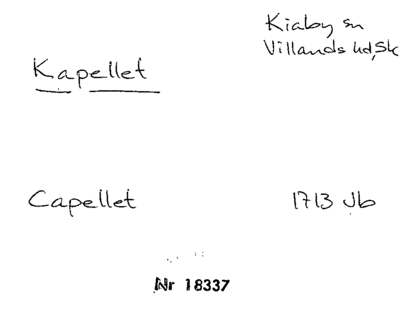 Kiaby sn
Villands hd, Sk
Kapellet
Capellet
1713 Jb
Nr 18337